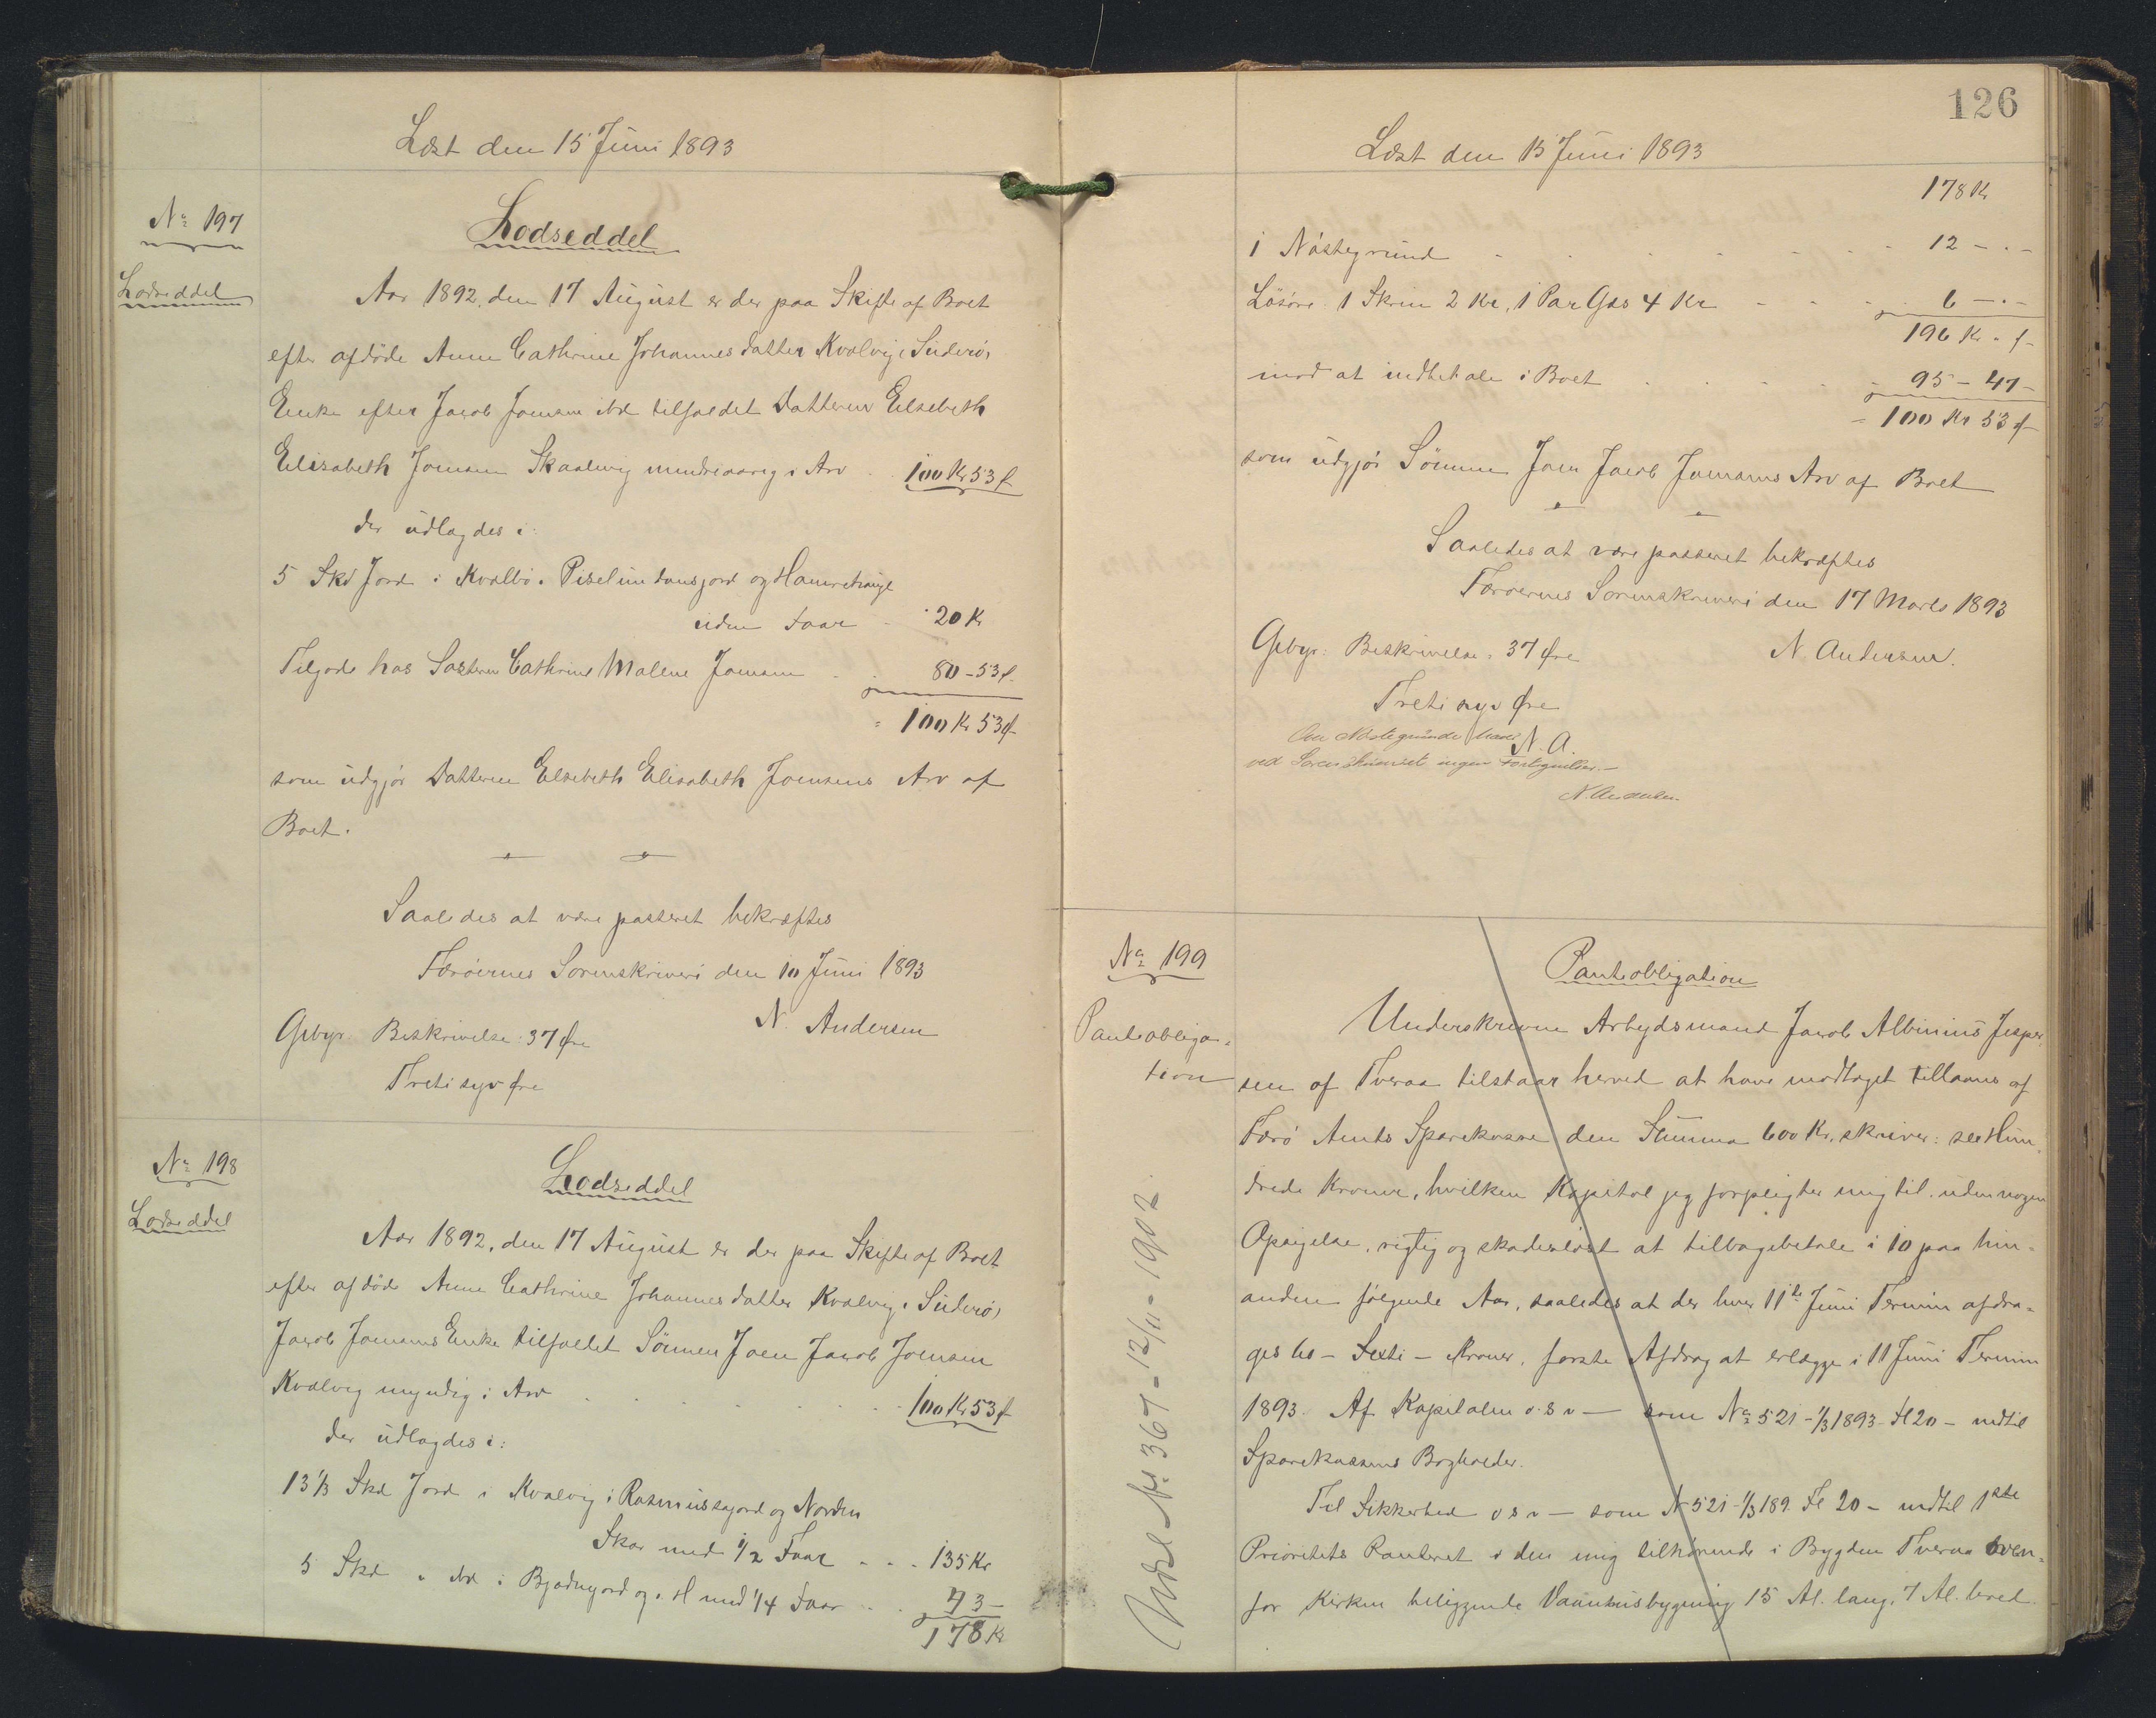 Læst den 15 Juni 1893
No 197
Lodseddel
Lodseddel
Aar 1892, den 17 August er der paa Skifte af Boet
efter afdøde Anne Cathrine Johannesdatter Kvalvig i Suderø,
Enke efter Jacob Joensen ibd tilfaldet Datteren Elsebeth
Elisabeth Joensen Skaalevig mindreaarig i Arv 100 Kr 53 ø
der udlagdes i:
5 Skd Jord i Kvalbø i jord og
uden Faar 20 K
Tilgode hos Søsteren Cathrine Malene Joensen 80 - 53 ø
= 100 Kr 53 ø
som udgjør Datteren Elsebeth Elisabeth Joensens Arv af
Boet.
Saaledes at være passeret bekræftes
Færøernes Sorenskriveri den 10 Juni 1893
N. Andersen
Gebyr: Beskrivelse: 37 Øre
Treti syv Øre
No 198
Lodseddel
Lodseddel
Aar 1892, den 17 August er der paa Skifte af Boet
efter afdøde Anne Cathrine Johannesdatter Kvalvig i Suderø,
Jacob Joensens Enke tilfaldet Sønnen Joen Jacob Joensen
Kvalvig myndig i Arv 100 Kr 53 ø
der udlagdes i:
13 1/3 Skd Jord i Kvalvig i Rasmussajord og Norden
Skor med 1/2 Faar - - - 135 Kr
5 Skd " ibd i og . H med 1/4 Faar 43 -
178 Kr
126
Læst den 15 Juni 1893
178 Kr
i Nøstegrund 12 - . -
Løsøre: 1 Skrin 2 Kr, 1 Par Gæs 4 Kr 6 - . -
196 Kr " ø
mod at indbetale i Boet 95 - 47 -
= 100 Kr 53 ø
som udgjør Sønnen Joen Jacob Joensens Arv af Boet
Saaledes at være passeret bekræftes
Færøernes Sorenskriveri den 17 Marts 1893
Gebyr: Beskrivelse: 37 Øre N. Andersen.
Treti syv Øre
N. A.
Om Nøstegrunde haves
ved Sorenskriveriet ingen Fortegnelser. -
N. Andersen
No 199
Panteobliga-
tion
Panteobligation
Underskrevne Arbejdsmand Jacob Albinius Jesper-
sen af Tveraa tilstaar herved at have modtaget tillaans af
Færø Amts Sparekasse den Summa 600 Kr. skriver: sex Hun-
drede Kroner, hvilken Kapital jeg forpligter mig til uden nogen
Opsigelse, rigtig og skadesløst at tilbagebetale i 10 paa hin-
anden følgende Aar, saaledes at der hver 11te Juni Termin afdra-
ges 60 - Sexti - Kroner, første Afdrag at erlægge i 11 Juni Termin
1893. Af Kapitalen o. s v - som No 521 - 1/3 1893 - Fl 20 - indtil
Sparekassens Bogholder.
Til Sikkerhed o s v - som N 521 - 1/3 189. Fl 20 - indtil 1ste
Prioritets Panteret i den mig tilhørende i Bygden Tveraa oven-
for Kirken beliggende Vaaningsbygning 15 Al. lang, 7 Al. bred
Udsl. No 367 - 12/11 - 1902.